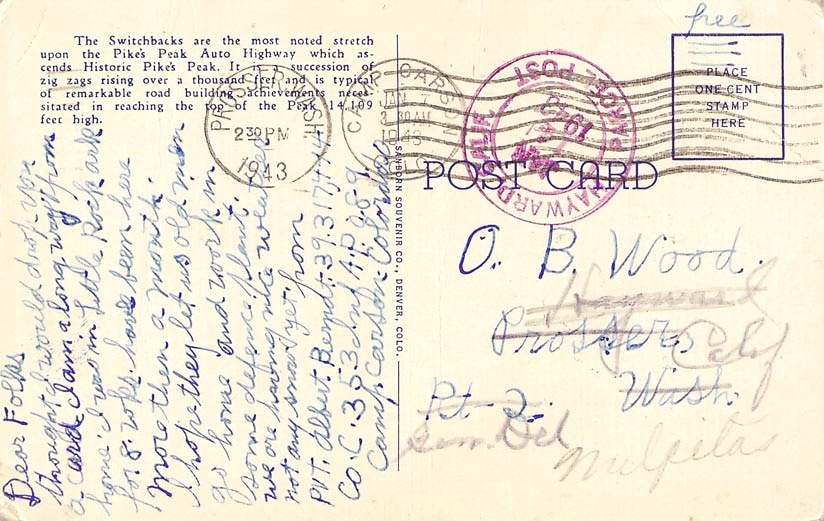 The Switchbacks are the most noted stretch
upon the Pike's Peak Auto Highway which as-
cends Historic Pike's Peak. It is a succession of
zig zags rising over a thousand feet and is typical
of remarkable road building achievements neces-
sitated in reaching the top of the Peak 14,109
feet high.
Dear Folks
thought I would drop you
a card. I am a long way from
home I was in Little Rock ark
for 8. wks. have been here
more then a month.
I hope they let us old men
go home and work in
some defence plant.
we are having nice weather
not any snow yet from
Pvt. Albert Berndt
Co. C. 353 inf
Camp Carson Colorado
SANBORN SOUVENIR CO., DENVER, COLO.
PROSSER WASH.
230 PM
1943
CARSON
JAN 7
1943
COLO
HAYWARD CALIF
PARCEL POST
1943
free
PLACE
ONE CENT
STAMP
HERE
POST CARD
O. B. Wood.
Hayward
Prosser
Calif
Rt-2.
Wash.
Gen. Del
Milpitas